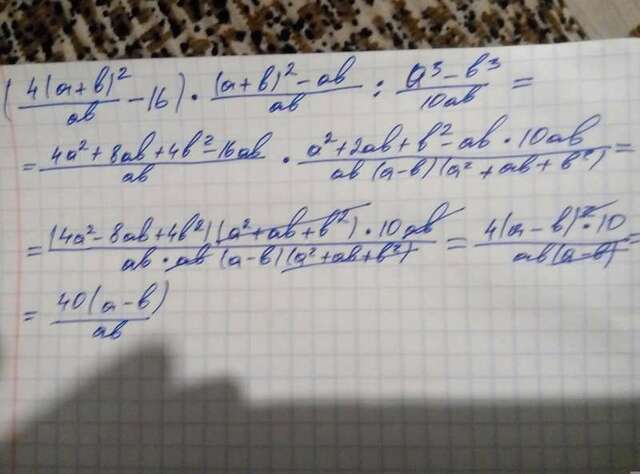 (4(a+b)²/ab - 16) · (a+b)² - ab/ab : a³ - b³/10ab =
= 4a² + 8ab + 4b² - 16ab/ab · a² + 2ab + b² - ab · 10ab/ab (a-b)(a² + ab + b²) =
= (4a² - 8ab + 4b²)(a² + ab + b²) · 10ab/ab · ab (a-b)(a² + ab + b²) = 4(a - b)² · 10/ab(a-b) =
= 40(a - b)/ab